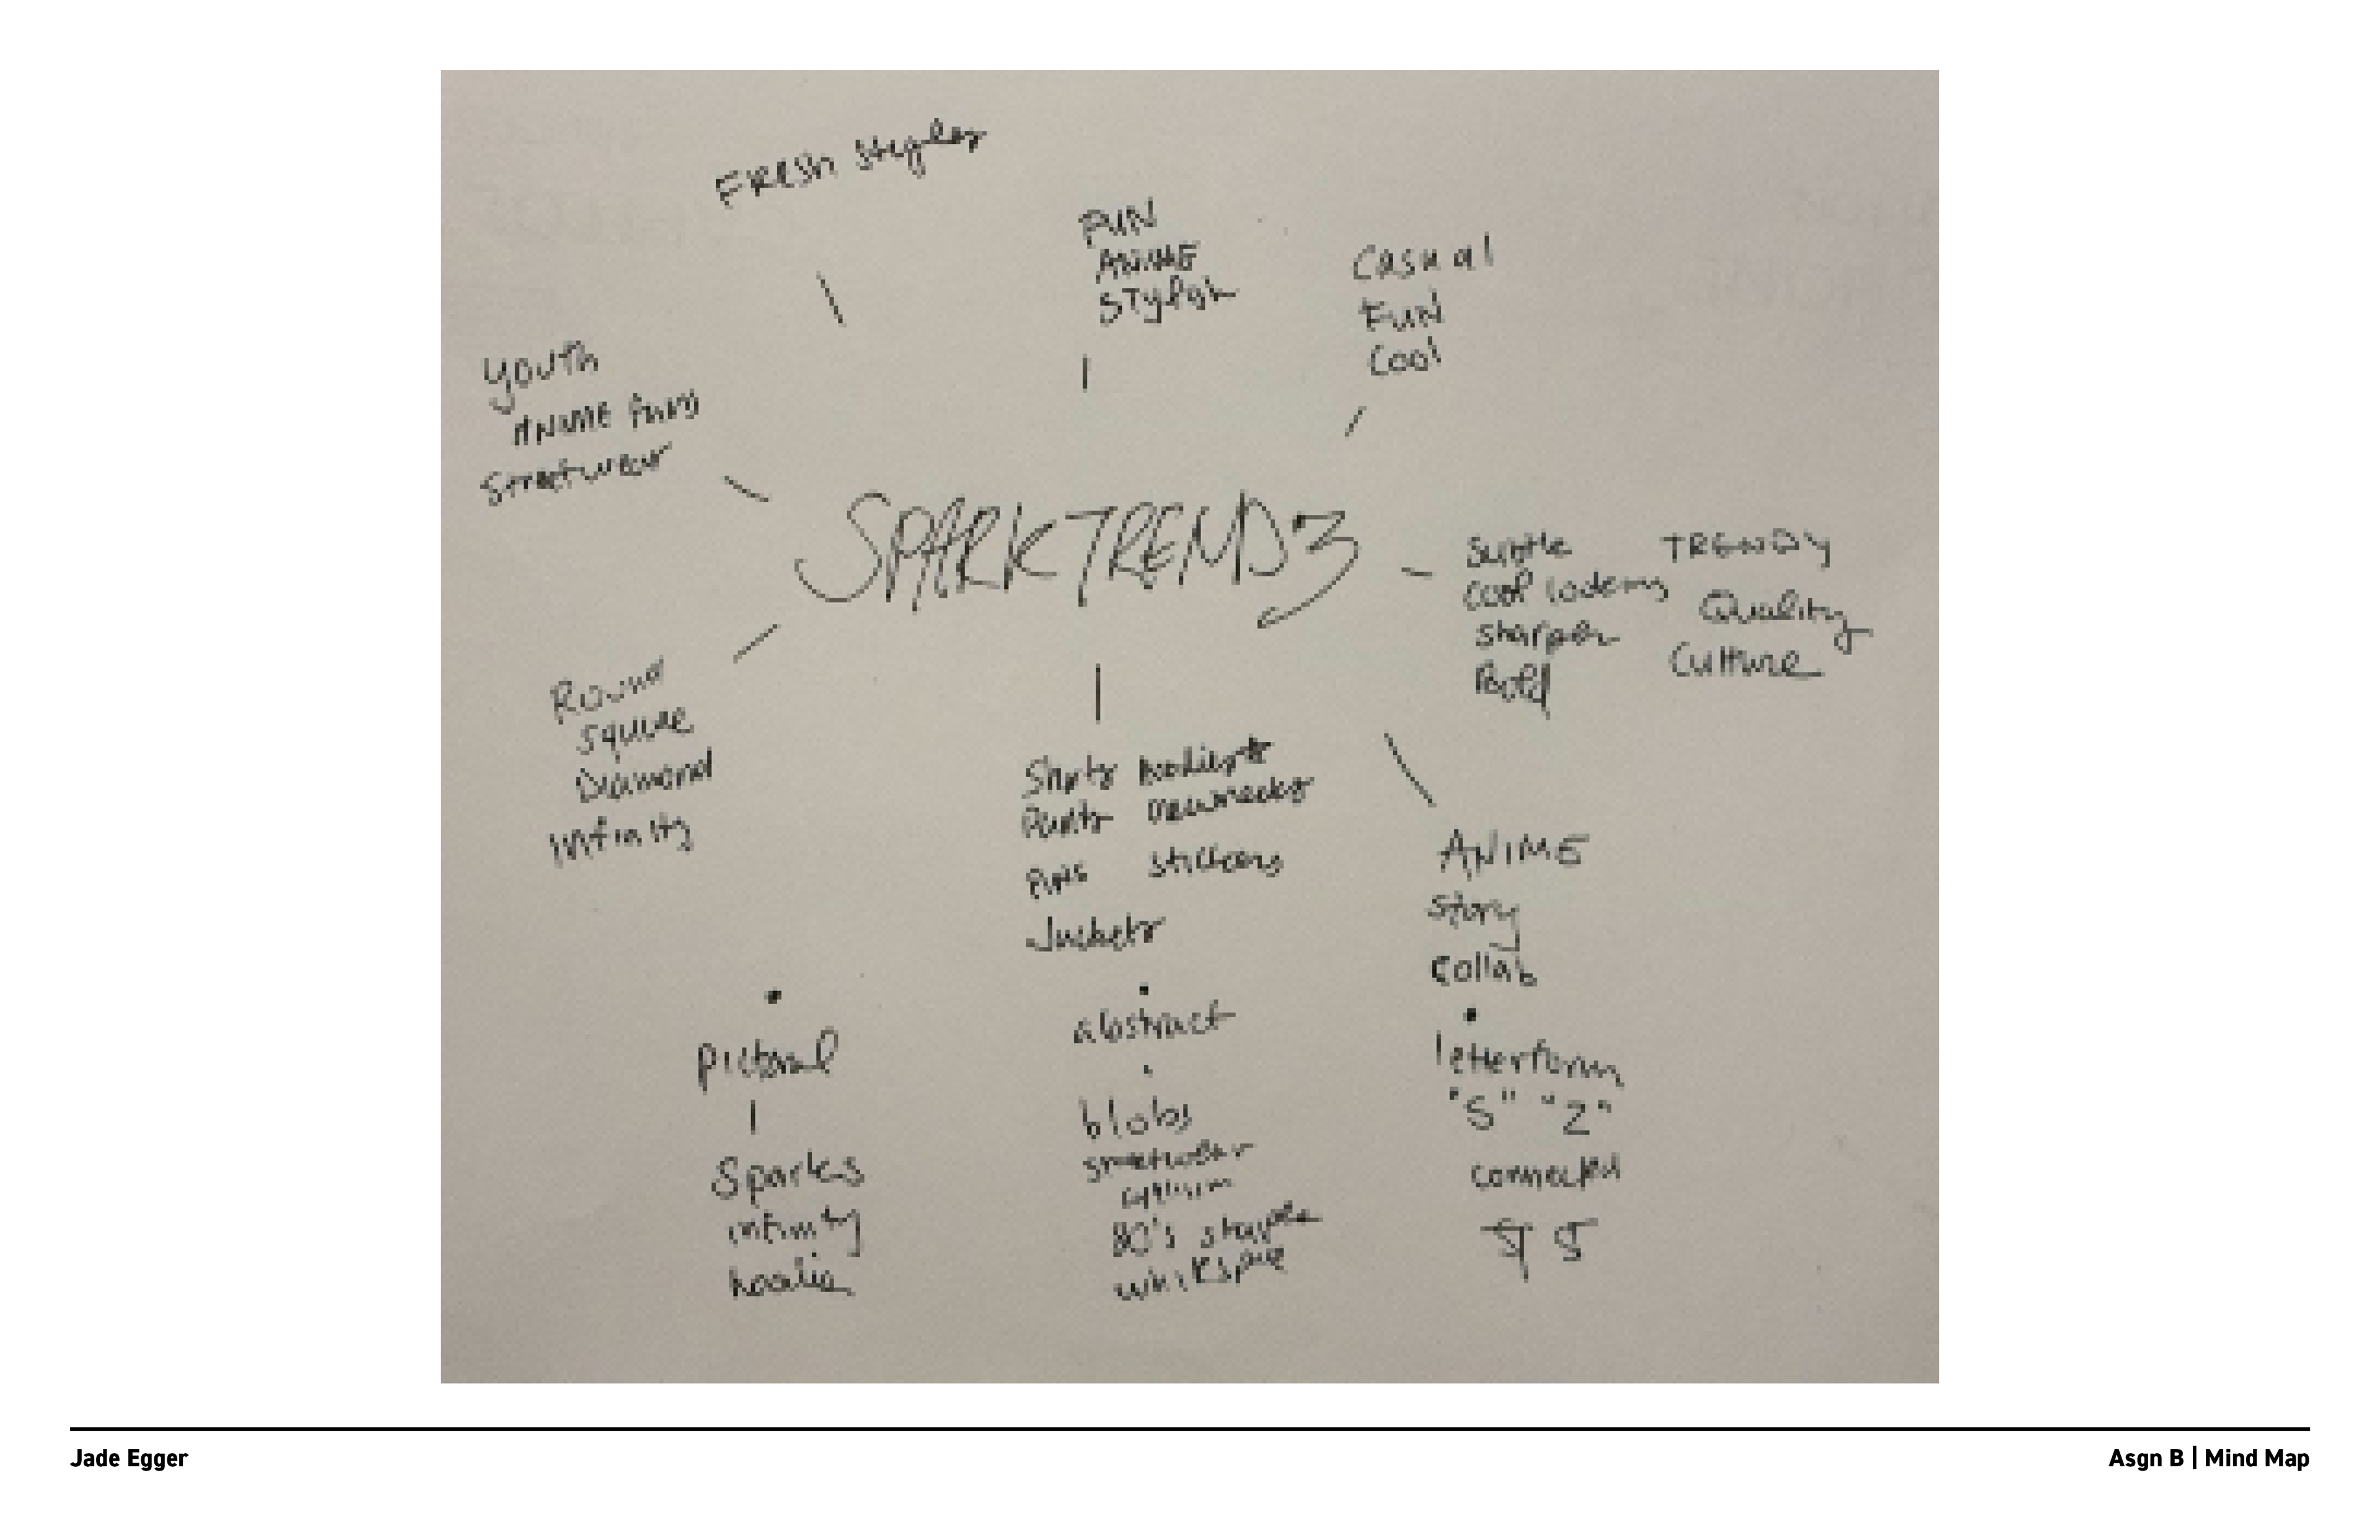 FRESH Staples
FUN
ANIME
STylish
Casual
FUN
Cool
Youth
ANIME fans
Streetwear
SPARKTRENDZ
Subtle TRENDY
Cool Quality
Sharper Culture
Bold
Round
Square
Diamond
infinity
Shirts hoodies
Pants crewnecks
Pins Stickers
Jackets
ANIME
Story
Collab
pictoral
abstract
letterform
"S" "Z"
blobs
Sparks
streetwear
connected
infinity
80's shapes
hoodie
whitespace
Jade Egger
Asgn B | Mind Map